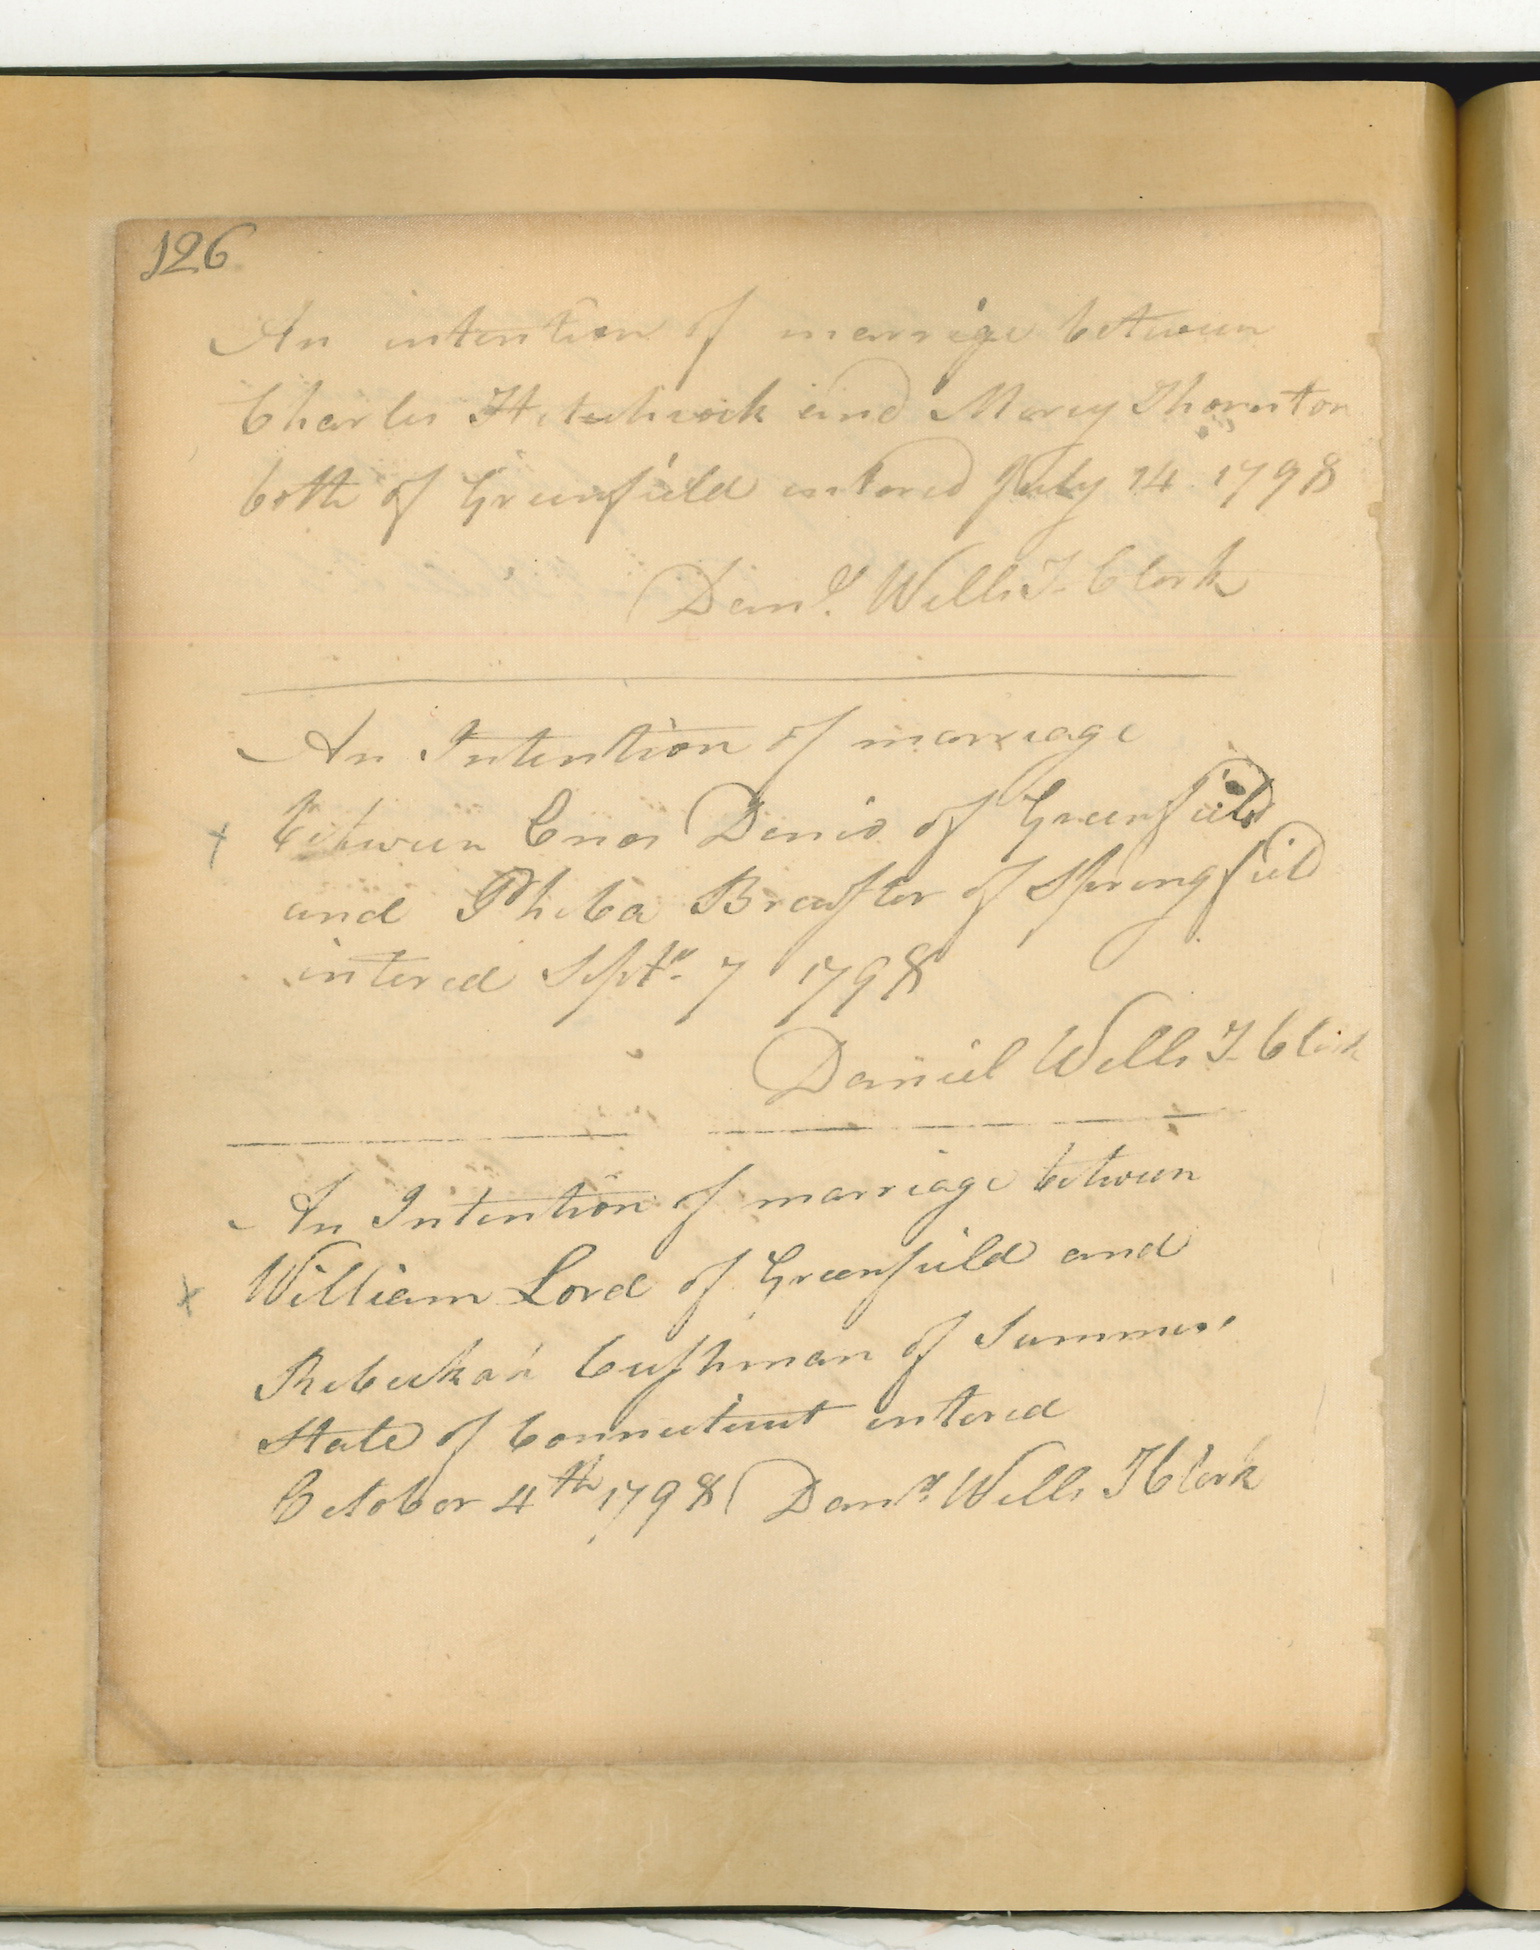 126
An intention of marrige between
Charles Hitchcock and Marcy Thornton
both of Greenfield entered July 14 1798
Danl. Wells T. Clerk
An Intention of marriage
+ between Enos Denio of Greenfield
and Pheba Brewster of Springfield
intered Septr. 7 1798
Daniel Wells T. Clerk
An Intention of marriage between
x William Lord of Greenfield and
Rebeckah Cushman of
State of Connecticut entered
October 4th 1798 Danl. Wells T Clerk